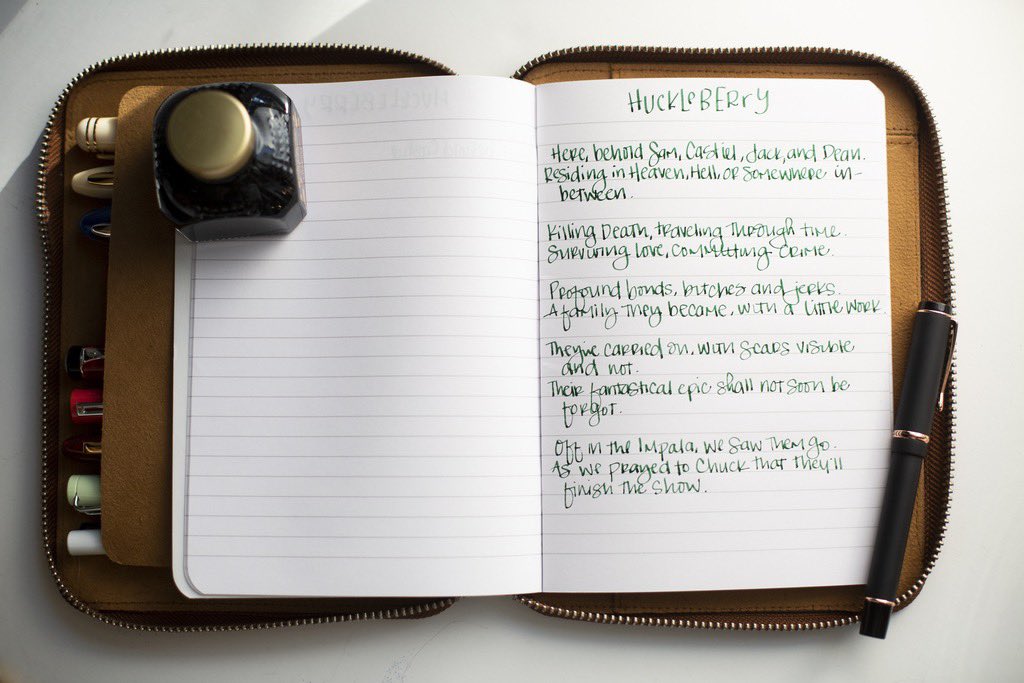 HUCKLEBERRY
Here, behold Sam, Castiel, Jack, and Dean.
Residing in Heaven, Hell, or Somewhere in-
between.
Killing Death, traveling through time.
Surviving love, committing crime.
Profound bonds, bitches and jerks.
A family they became, with a little work.
They've carried on, with scars visible
and not.
Their fantastical epic shall not soon be
forgot.
Oft in the Impala, we saw them go.
As we prayed to Chuck that they'll
finish the show.